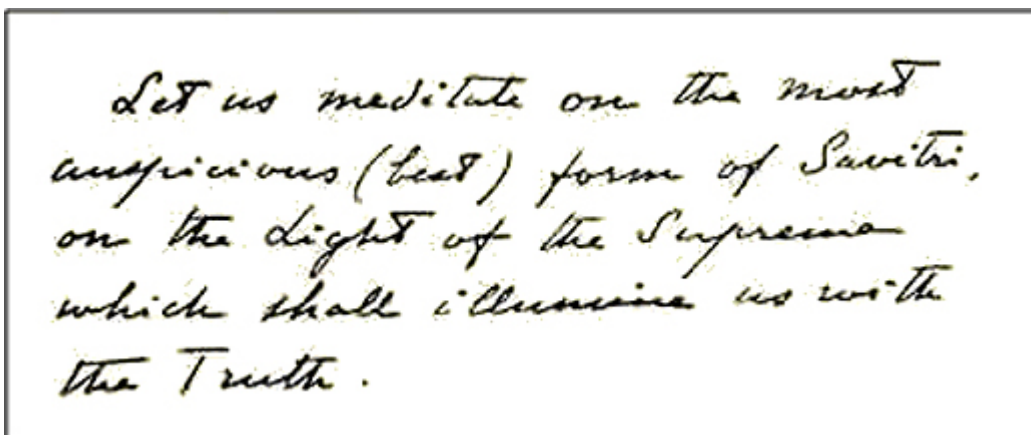 Let us meditate on the most
auspicious (best) form of Savitri,
on the Light of the Supreme
which shall illumine us with
the Truth.